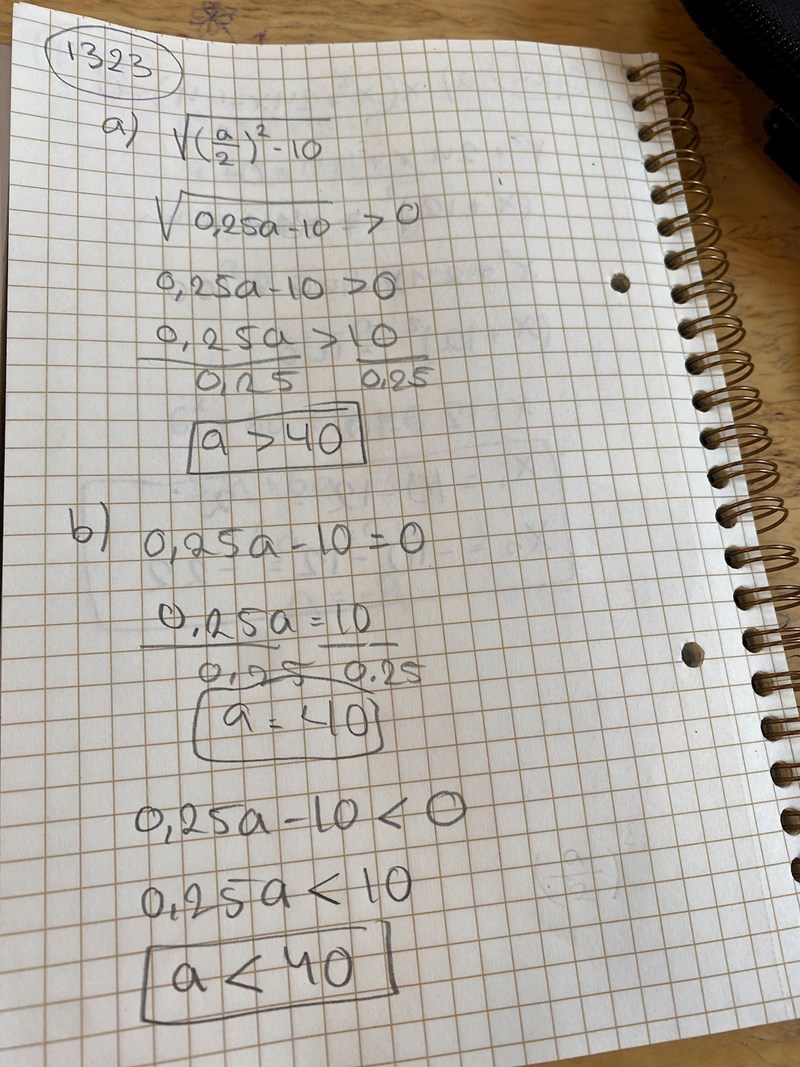 1323
a) √((a/2)² - 10)
√(0,25a-10) > 0
0,25a-10 >0
0,25a > 10
0,25 0,25
a > 40
b) 0,25a - 10 = 0
0,25a = 10
0,25 0.25
a = 40
0,25a - 10 < 0
0,25a < 10
a < 40